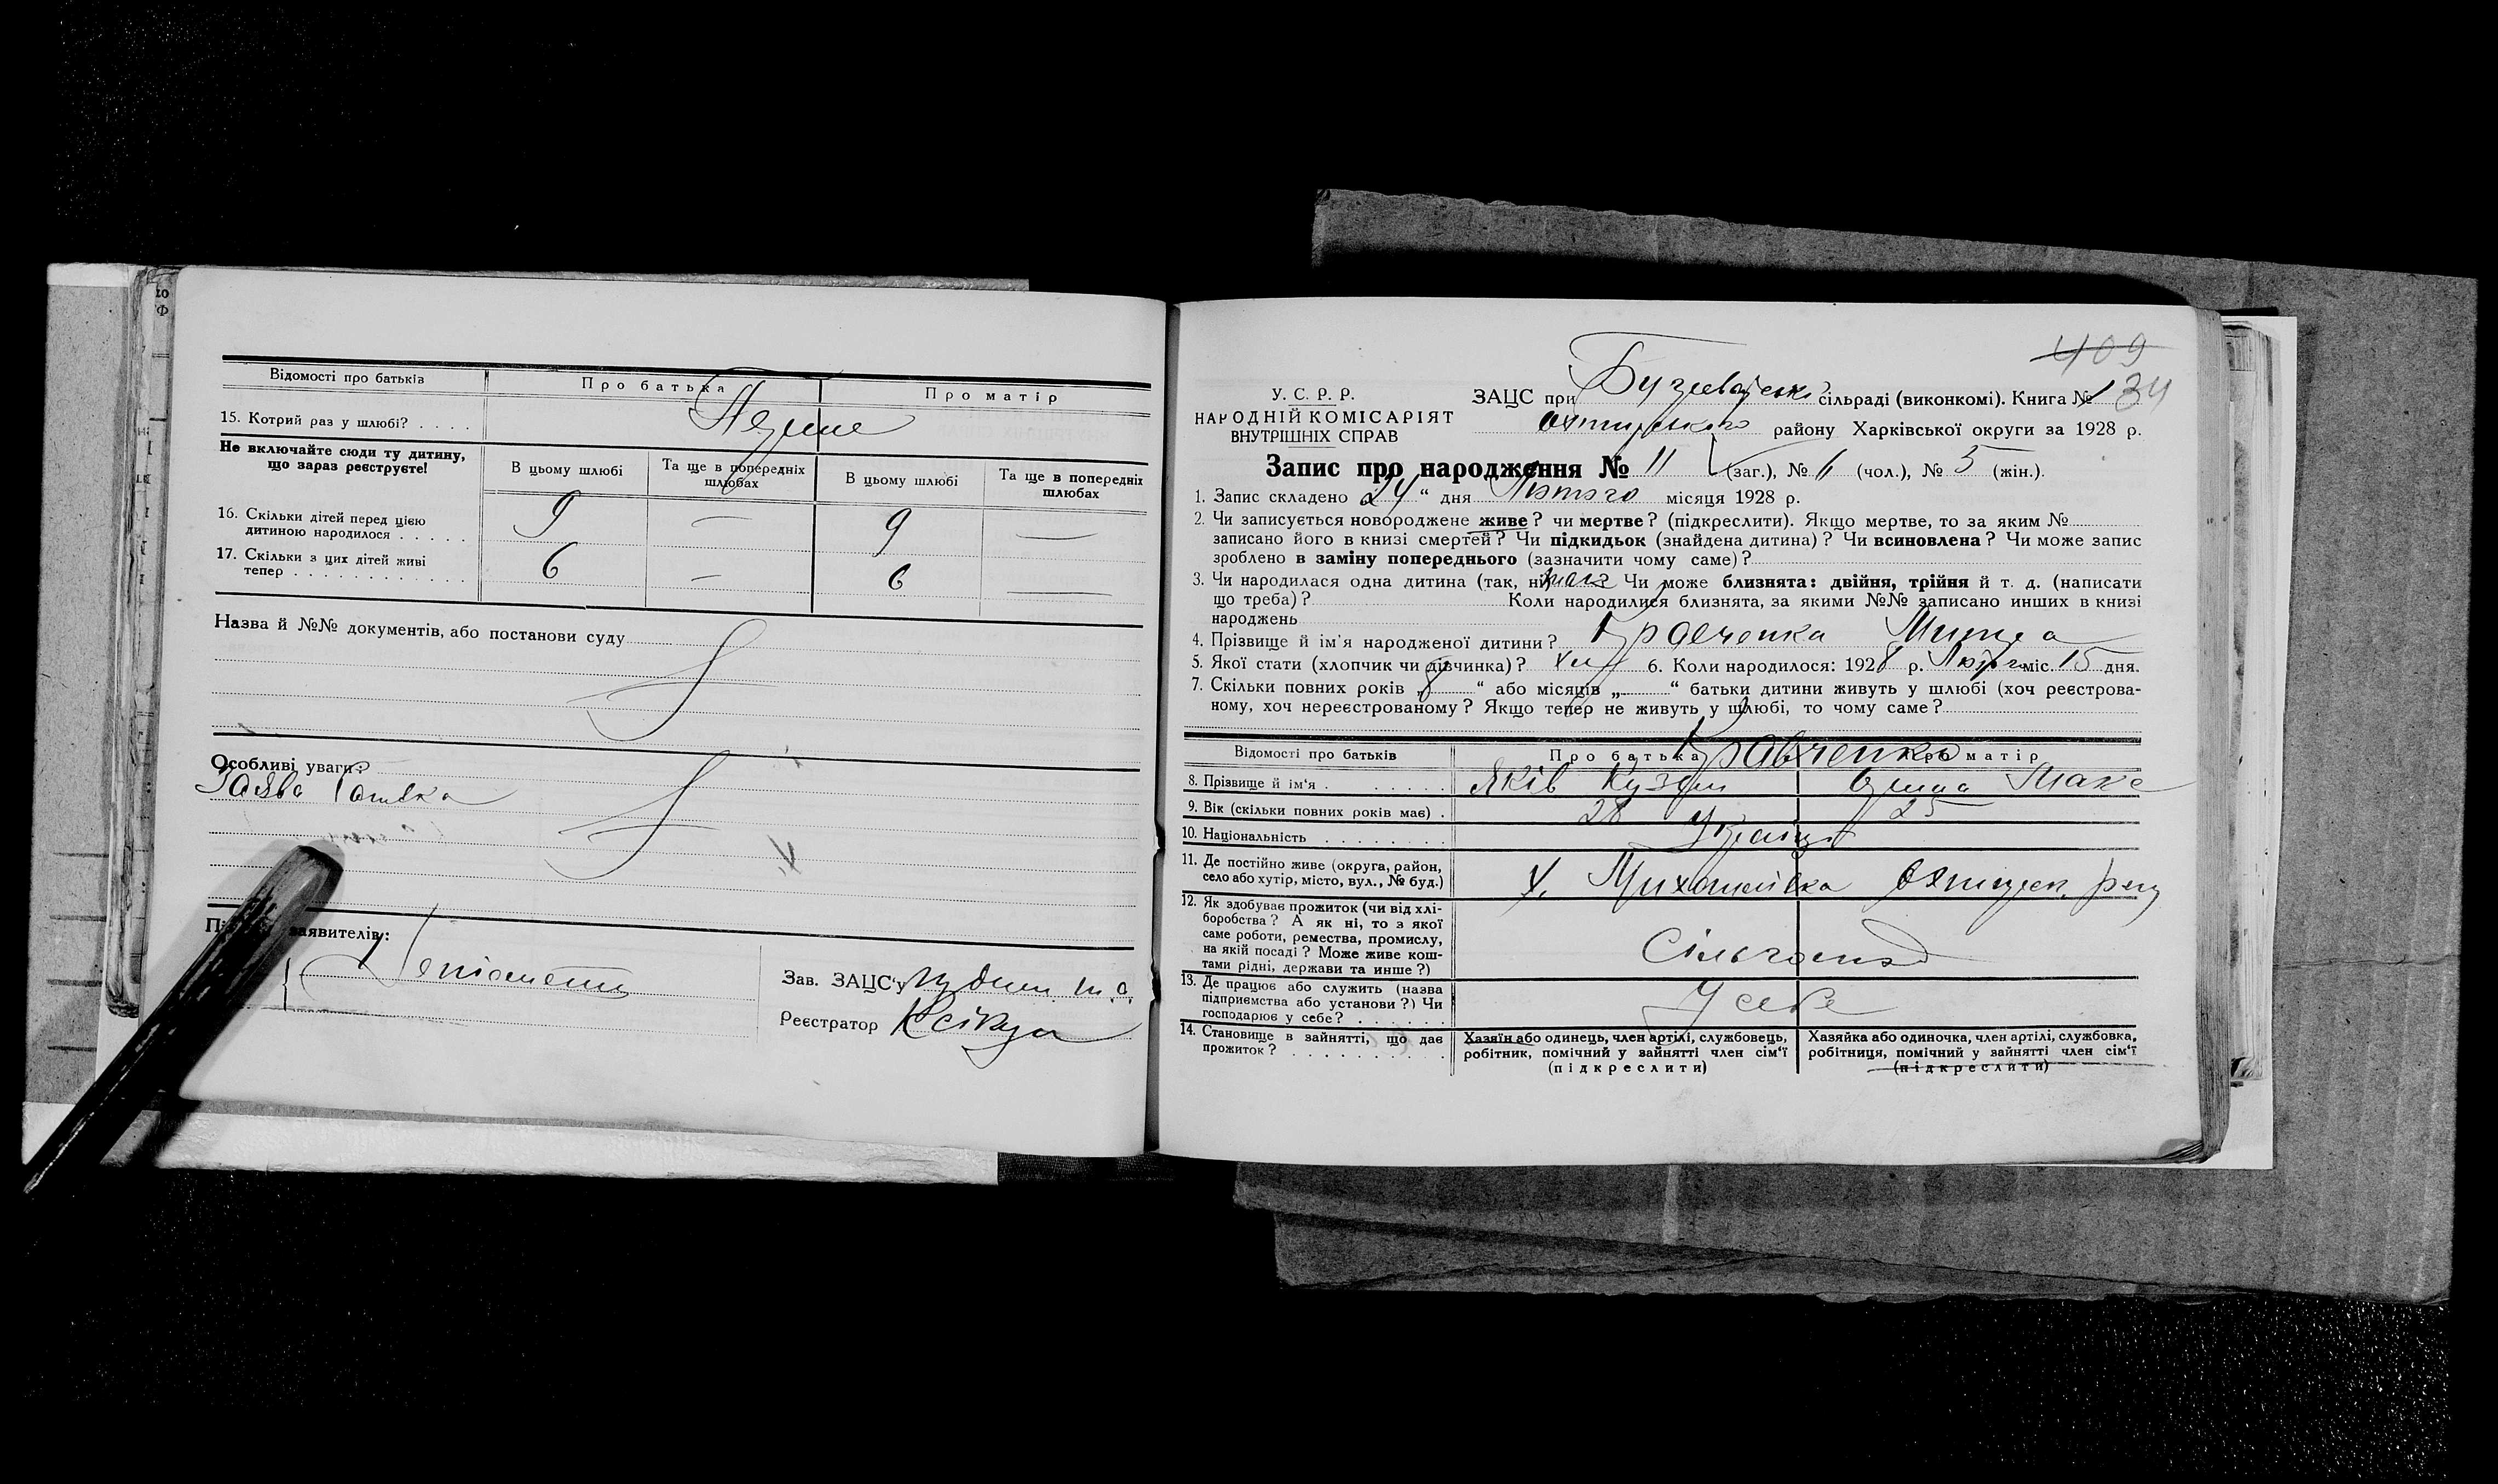 Відомості про батьків
Про батька
Про матір
15. Котрий раз у шлюбі? . . . .
Не включайте сюди ту дитину, що зараз реєструєте!
В цьому шлюбі
Та ще в попередніх шлюбах
В цьому шлюбі
Та ще в попередніх шлюбах
16. Скільки дітей перед цією
дитиною народилося . . . . .
9 — 9 —
17. Скільки з цих дітей живі
тепер . . . . . . . . . . . .
6 — 6 —
Назва й №№ документів, або постанови суду
Особливі уваги:
Заява батька
заявителів:
Зав. ЗАЦС'у
Реєстратор
409
34
У. С. Р. Р.
НАРОДНІЙ КОМІСАРІЯТ
ВНУТРІШНІХ СПРАВ
ЗАЦС при сільраді (виконкомі). Книга № 1
Охтирського району Харківської округи за 1928 р.
Запис про народження № 11 (заг.), № 6 (чол.), № 5 (жін.).
1. Запис складено 24 “ дня Лютого місяця 1928 р.
2. Чи записується новороджене живе? чи мертве? (підкреслити). Якщо мертве, то за яким №
записано його в книзі смертей? Чи підкидьок (знайдена дитина)? Чи всиновлена? Чи може запис
зроблено в заміну попереднього (зазначити чому саме)?
3. Чи народилася одна дитина (так, ні) так Чи може близнята: двійня, трійня й т. д. (написати
що треба)? Коли народилися близнята, за якими №№ записано инших в книзі
народжень
4. Прізвище й ім'я народженої дитини? Кравченка
5. Якої стати (хлопчик чи дівчинка)? 6. Коли народилося: 1928 р. Лютого міс. 15 дня.
7. Скільки повних років „8“ або місяців „ “ батьки дитини живуть у шлюбі (хоч реєстрова-
ному, хоч нереєстрованому? Якщо тепер не живуть у шлюбі, то чому саме?
Відомості про батьків
Про батька
Про матір
Кравченко
8. Прізвище й ім'я . Яків Кузьм
9. Вік (скільки повних років має) . 28 25
10. Національність . . . . . . . . Україн
11. Де постійно живе (округа, район,
село або хутір, місто, вул., № буд.)
х. Михайлівка
12. Як здобуває прожиток (чи від хлі-
боробства? А як ні, то з якої
саме роботи, ремества, промислу,
на якій посаді? Може живе кош-
тами рідні, держави та инше?)
13. Де працює або служить (назва
підприємства або установи?) Чи
господарює у себе? . . . . . .
У себе
14. Становище в зайнятті, що дає
прожиток? . . . . . . . . . .
Хазяїн або одинець, член артілі, службовець,
робітник, помічний у зайнятті член сім'ї
(підкреслити)
Хазяйка або одиночка, член артілі, службовка,
робітниця, помічний у зайнятті член сім'ї
(підкреслити)